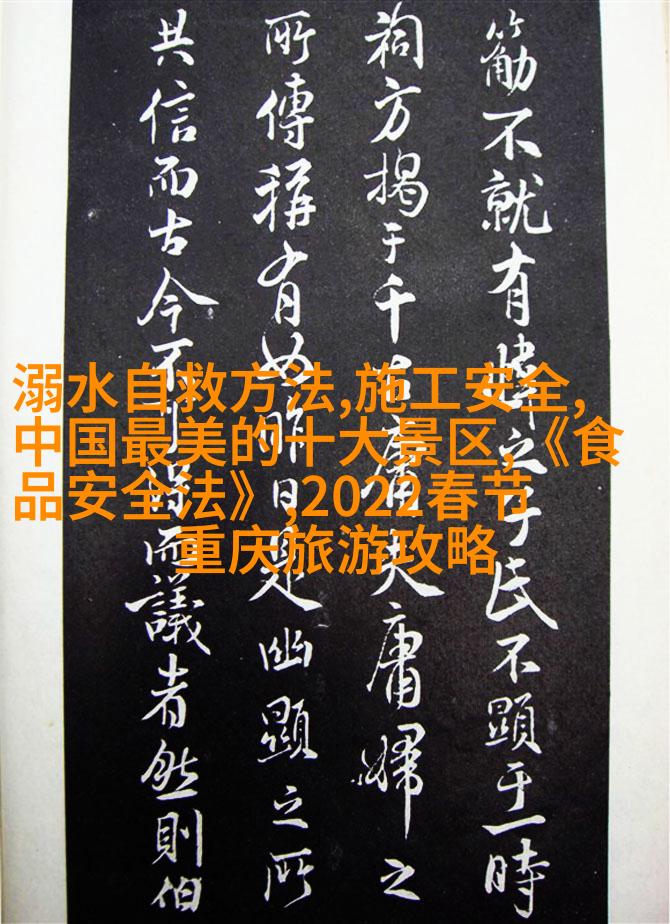 觔不就有婞之于民不顯于一時
祠方揭于千
庸夫庸婦之
所傳稱有如昨日是幽顯之所
共信而古今不可得而議者然則伯
溺水自救方法,施工安全,
中国最美的十大景区,《食
品安全法》,2022春节
重庆旅游攻略